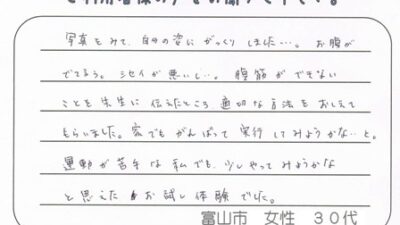 写真をみて、自分の姿にがっくりしました…。お腹が
でてるう。シセイが悪いし…。腹筋ができない
ことを先生に伝えたところ、適切な方法をおしえて
もらいました。家でもがんばって実行してみようかな…と。
運動が苦手な私でも、少しやってみようかな
と思えたお試し体験でした。
富山市 女性 30代